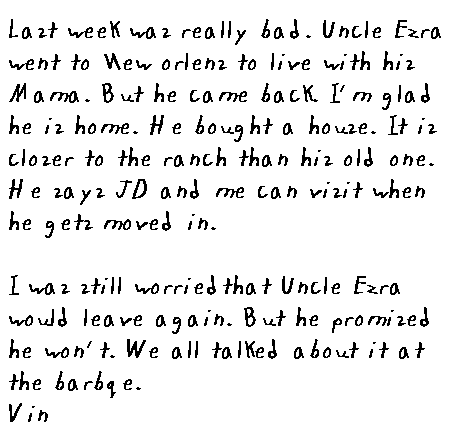 Last week was really bad. Uncle Ezra
went to New orlens to live with his
Mama. But he came back. I'm glad
he is home. He bought a house. It is
closer to the ranch than his old one.
He says JD and me can visit when
he gets moved in.

I was still worried that Uncle Ezra
would leave again. But he promised
he won't. We all talked about it at
the barbqe.
Vin